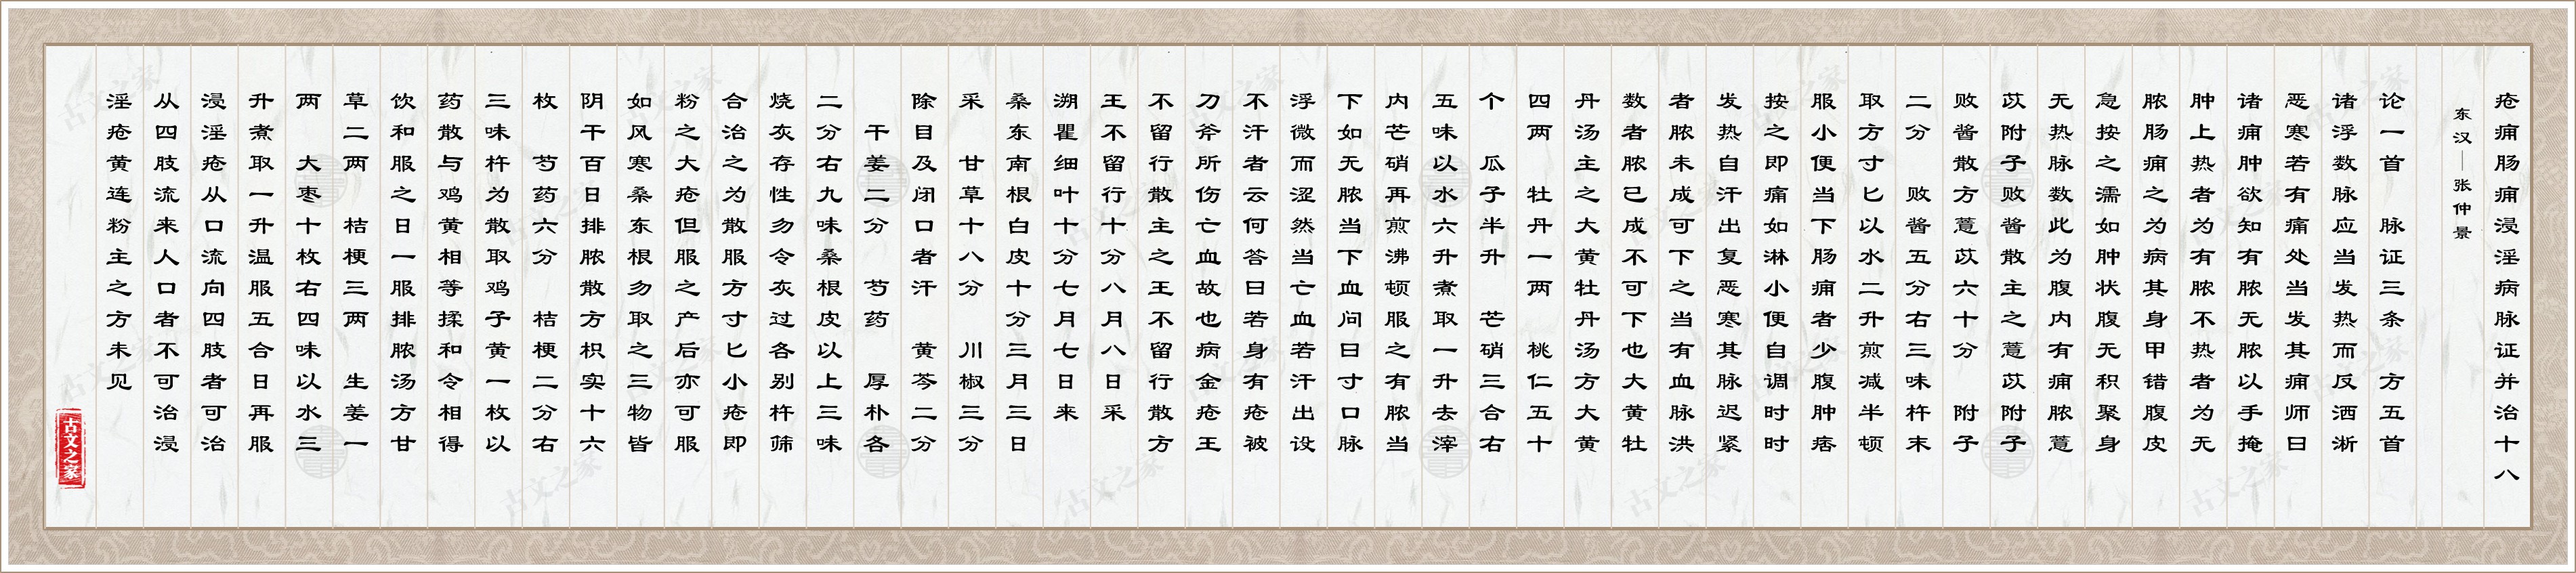 疮痈肠痈浸淫病脉证并治十八
东汉—张仲景
论一首　脉证三条　方五首
诸浮数脉应当发热而反洒淅
恶寒若有痛处当发其痈师曰
诸痈肿欲知有脓无脓以手掩
肿上热者为有脓不热者为无
脓肠痈之为病其身甲错腹皮
急按之濡如肿状腹无积聚身
无热脉数此为腹内有痈脓薏
苡附子败酱散主之薏苡附子
败酱散方薏苡六十分　附子
二分　败酱五分右三味杵末
取方寸匕以水二升煎减半顿
服小便当下肠痈者少腹肿痞
按之即痛如淋小便自调时时
发热自汗出复恶寒其脉迟紧
者脓未成可下之当有血脉洪
数者脓已成不可下也大黄牡
丹汤主之大黄牡丹汤方大黄
四两　牡丹一两　桃仁五十
个　瓜子半升　芒硝三合右
五味以水六升煮取一升去滓
内芒硝再煎沸顿服之有脓当
下如无脓当下血问曰寸口脉
浮微而涩然当亡血若汗出设
不汗者云何答曰若身有疮被
刀斧所伤亡血故也病金疮王
不留行散主之王不留行散方
王不留行十分八月八日采
溯瞿细叶十分七月七日来
桑东南根白皮十分三月三日
采　甘草十八分　川椒三分
除目及闭口者汗　黄芩二分
干姜二分　芍药　厚朴各
二分右九味桑根皮以上三味
烧灰存性勿令灰过各别杵筛
合治之为散服方寸匕小疮即
粉之大疮但服之产后亦可服
如风寒桑东根勿取之三物皆
阴干百日排脓散方枳实十六
枚　芍药六分　桔梗二分右
三味杵为散取鸡子黄一枚以
药散与鸡黄相等揉和令相得
饮和服之日一服排脓汤方甘
草二两　桔梗三两　生姜一
两　大枣十枚右四味以水三
升煮取一升温服五合日再服
浸淫疮从口流向四肢者可治
从四肢流来人口者不可治浸
淫疮黄连粉主之方未见
古文之家